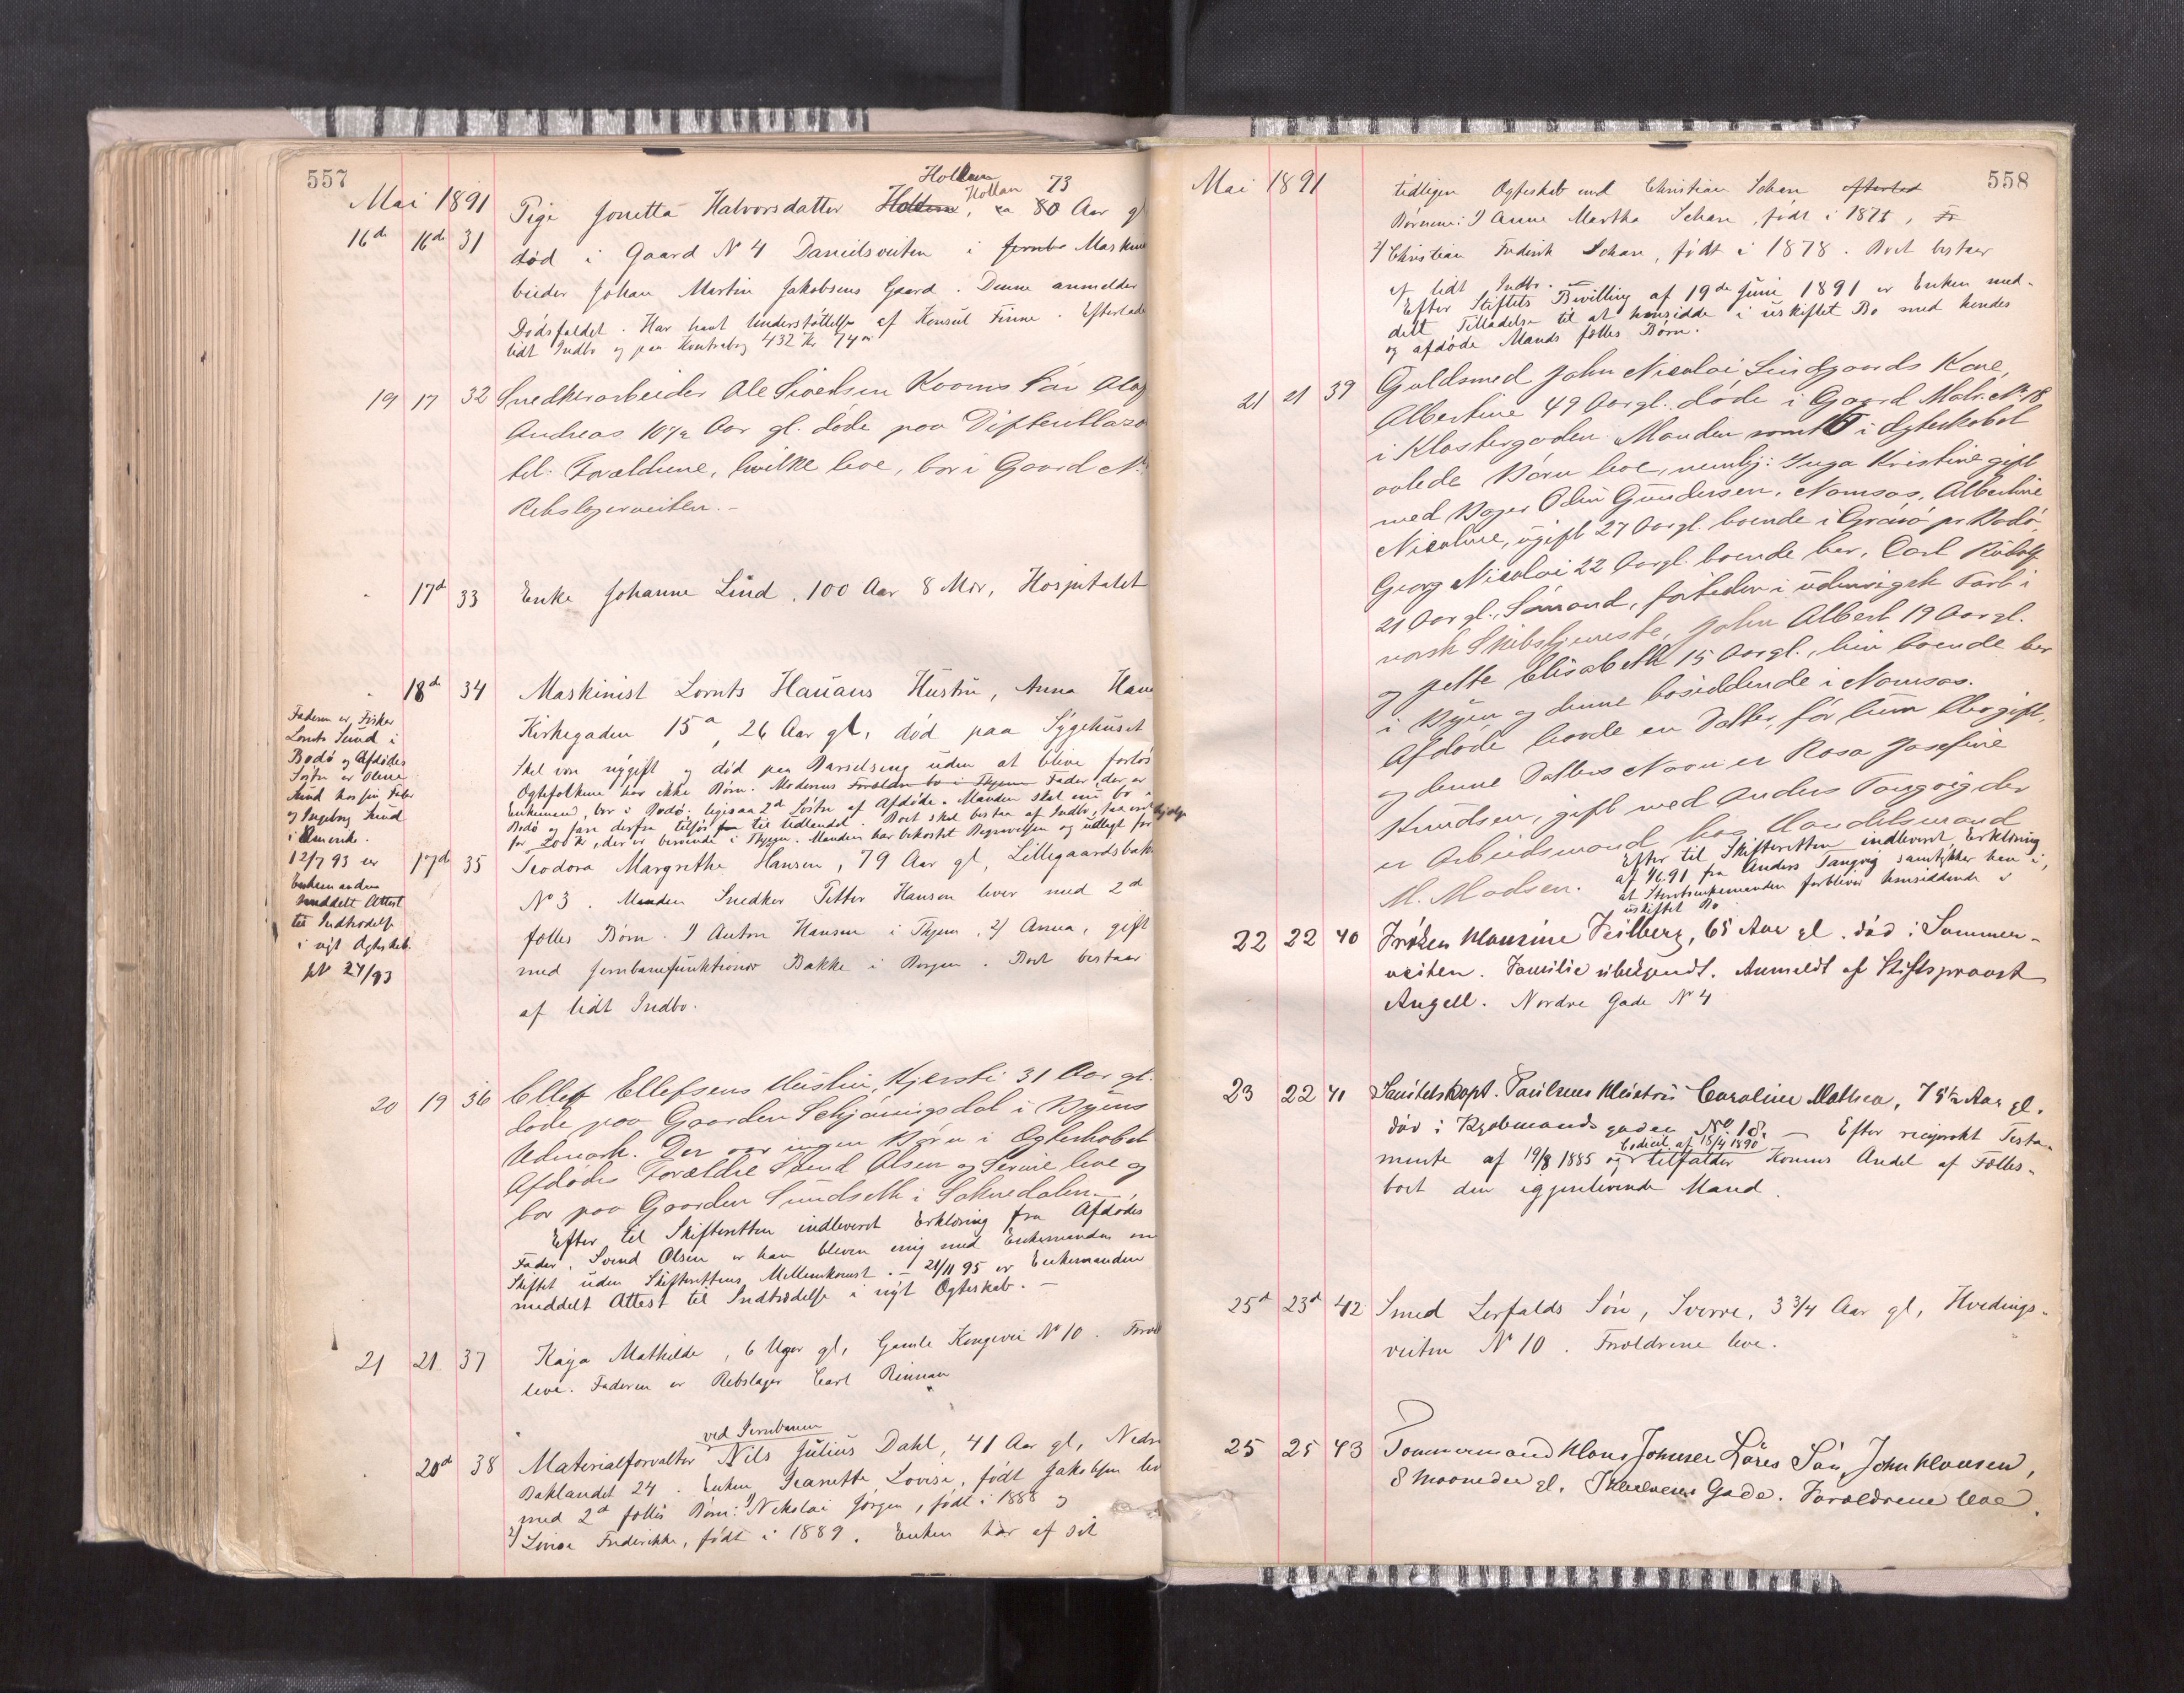 557
Mai 1891
Hollan
Hollan 73
Pige Jonetta Halvorsdatter Holtern, ca 80 Aar gl
16de 16de 31
død i Gaard No 4 Danielsveiten i Jernba Maskin
beider Johan Martin Jakobsens Gaard. Denne anmelder
Dødsfaldet. Har havt Understøttelse af Konsul Finne. Efterlade
lidt Indbo og paa Kontrabog 432 Kr 74 ø
19 17 32 Snedkerarbeider Ole Sivertsen Kooms Søn Olaf
Andreas 10½ Aar gl. døde paa Difterilaza
tel: Forældrene, hvilke leve, bor i Gaard No
Rebslagerveiten.-
17d 33 Enke Johanne Lind, 100 Aar 8 Mdr, Hospitalet
18d 34 Maskinist Lornts Hauans Hustru, Anna Hau
Kirkegaden 15a, 26 Aar gl, død paa Sygehuset
Skal være nygift og død paa Barselseng uden at blive forløs
Ægtefolkene har ikke Børn. Moderens Forældre bo i Thjem Fader, der er
Enkemand, bor i Bodø, ligesaa 2d Søstre af Afdøde. Manden skal nu bo i
Bodø og fare derfra til Udlandet. Boet skal bestaa af Indbo,
for 200 Kr, der er beroende i Thjem. Manden har bekostet Begravelsen og udlagt for
Faderen er Fisker
Lornts Sund i
Bodø og Afdødes
Søstre er Oline
Sund hos sin Fader
og Ingeborg Sund
i Amerika.
12/7 93 er
Enkemanden
meddelt Attest
til Indtrædelse
i nyt Ægteskab.
24/93
17d 35 Teodora Margrethe Hansen, 79 Aar gl, Lillegaardsbak
No 3. Manden Snedker Petter Hansen lever med 2d
fælles Børn. 1) Anton Hansen i Thjem, 2) Anna, gift
med Jernbanefunktionær Bakke i Bergen. Boet bestaar
af lidt Indbo.
20 19 36 Ellef Ellefsens Hustru, Kjersti 31 Aar gl.
døde paa Gaarden Schjøningsdal i Byens
Udmark. Der var ingen Børn i Ægteskabet
Afdødes Forældre Svend Olsen og Serine leve og
bor paa Gaarden Sundseth i Soknedalen.-
Efter til Skifteretten indleveret Erklæring fra Afdødes
Fader, Svend Olsen er han bleven enig med Enkemanden om
Skiftet uden Skifterettens Mellemkomst.- 21/11 95 er Enkemanden
meddelt Attest til Indtrædelse i nyt Ægteskab.-
21 21 37 Kaja Mathilde, 6 Uger gl, Gamle Kongevei No 10. Foræl
leve. Faderen er Rebslager Carl Rinnan
ved Jernbanen
20d 38 Materialforvalter Nils Julius Dahl, 41 Aar gl, Nedre
Baklandet 24. Enken Jeanette Lovise, født Jakobsen lev
med 2d fælles Børn: 1) Nikolai Jørgen, født i 1888 og
2) Lovise Frederikke, født i 1889. Enken har af sit
Mai 1891 558
tidligere Ægteskab med Christian Schar efterlad
Børnene: 1) Anne Martha Schar, født i 1875, Fr
2) Christian Frederik Schar, født i 1878. Boet bestaar
af lidt Indbo.-
Efter Stiftets Bevilling af 19de Juni 1891 er Enken med-
delt Tilladelse til at hensidde i uskiftet Bo med hendes
og afdøde Mands fælles Børn.
21 21 39 Guldsmed John Nicolai Lindgaards Kone,
Albertine 49 Aar gl. døde i Gaard Matr. No 18
i Klostergaden. Manden samt 6 i Ægteskabet
avlede Børn leve, nemlig: Inga Kristine gift
med Bager Odin Gundersen, Namsos, Albertine
Nicoline, ugift 27 Aar gl. boende i Grøsø pr Bodø
Georg Nicolai 22 Aar gl. boende her, Carl Rudolf
21 Aar gl., Sømand, fortiden i udenrigsk Fart i
norsk Skibstjeneste, John Albert 19 Aar gl.
og Jette Elisabeth 15 Aar gl., hin boende her
i Byen og denne bosiddende i Namsos.
Afdøde havde en Datter, før hun blev gift,
og denne Datters Navn er Rosa Josefine
Knudsen, gift med Anders Tangvig der
er Arbeidsmand hos Handelsmand
M. Madsen. Efter til Skifteretten indleveret Erklæring
af 4/6 91 fra Anders Tangvig samtykker han i,
at Stervboenkemanden forbliver hensiddende i
uskiftet Bo
22 22 40 Frøken Hansine Feilberg, 65 Aar gl. død i Sommer-
veiten. Familie ubekjendt. Anmeldt af Stiftsprovst
Angell. Nordre Gade No 4
23 22 41 Sanitetskapt. Paulsens Hustru Caroline Mathea, 75½ Aar gl.
død i Kjøbmandsgaden No 18. – Efter reciprokt Testa-
codicil af 15/4 1890
mente af 19/8 1885 og tilfalder Konens Andel af Fælles-
boet den igjenlevende Mand.
25d 23d 42 Smed Lerfalds Søn, Sverre, 3 3/4 Aar gl, Hvedings-
veiten No 10. Forældrene leve.
25 25 43 Tømmermand Klaus Johnsen Løres Søn, John Klausen,
8 Maaneder gl. Gade. Forældrene leve.